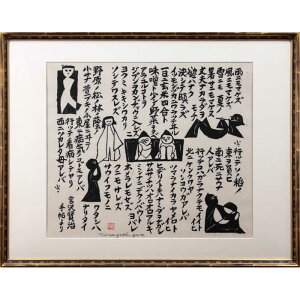 雨ニモマケズ
風ニモマケズ
雪ニモ夏ノ
暑サニモマケヌ
丈夫ナカラダヲモチ
決シテ瞋ラズ
イツモシヅカニワラッテヰル
一日ニ玄米四合ト
味噌ト少シノ野菜ヲタベ
アラユルコトヲ
ヨクミキキシワカリ
ソシテワスレズ
野原ノ松ノ林ノ蔭ノ
小サナ萱ブキノ小屋ニヰテ
東ニ病気ノコドモアレバ
行ッテ看病シテヤリ
西ニツカレタ母アレバ
行ッテソノ稲ノ
束ヲ負ヒ
南ニ死ニサウナ
人アレバ
行ッテコハガラナクテモイイトイヒ
ツマラナイカラヤメロト
イヒ
ヒデリノトキハナミダヲナガシ
サムサノナツハオロオロアルキ
ミンナニデクノボートヨバレ
ホメラレモセズ
クニモサレズ
サウイフモノニ
ワタシハ
ナリタイ
宮沢賢治
手帖より